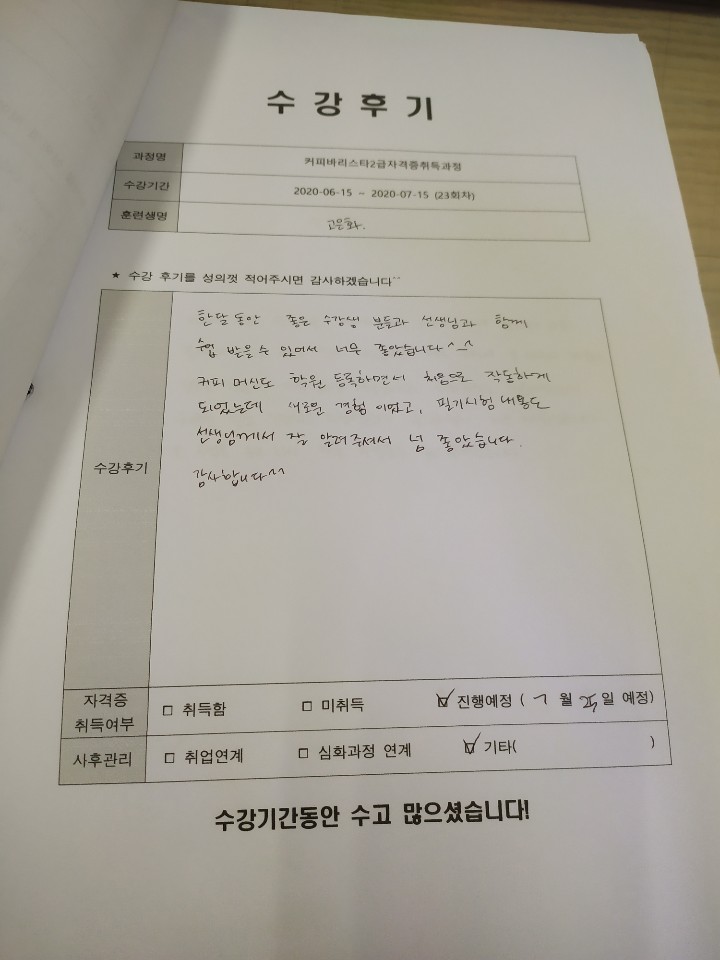 수강후기
과정명 커피바리스타2급자격증취득과정
수강기간 2020-06-15 ~ 2020-07-15 (23회차)
훈련생명 고은화.
★ 수강 후기를 성의껏 적어주시면 감사하겠습니다^^
수강후기
한달 동안 좋은 수강생 분들과 선생님과 함께
수업 받을 수 있어서 너무 좋았습니다 ^_^
커피 머신도 학원 등록하면서 처음으로 작동하게
되었는데 새로운 경험 이었고, 필기시험 내용도
선생님께서 잘 알려주셔서 넘 좋았습니다.
감사합니다^^
자격증
취득여부
□ 취득함 □ 미취득 ☑ 진행예정 ( 7 월 일 예정)
사후관리 □ 취업연계 □ 심화과정 연계 ☑ 기타( )
수강기간동안 수고 많으셨습니다!